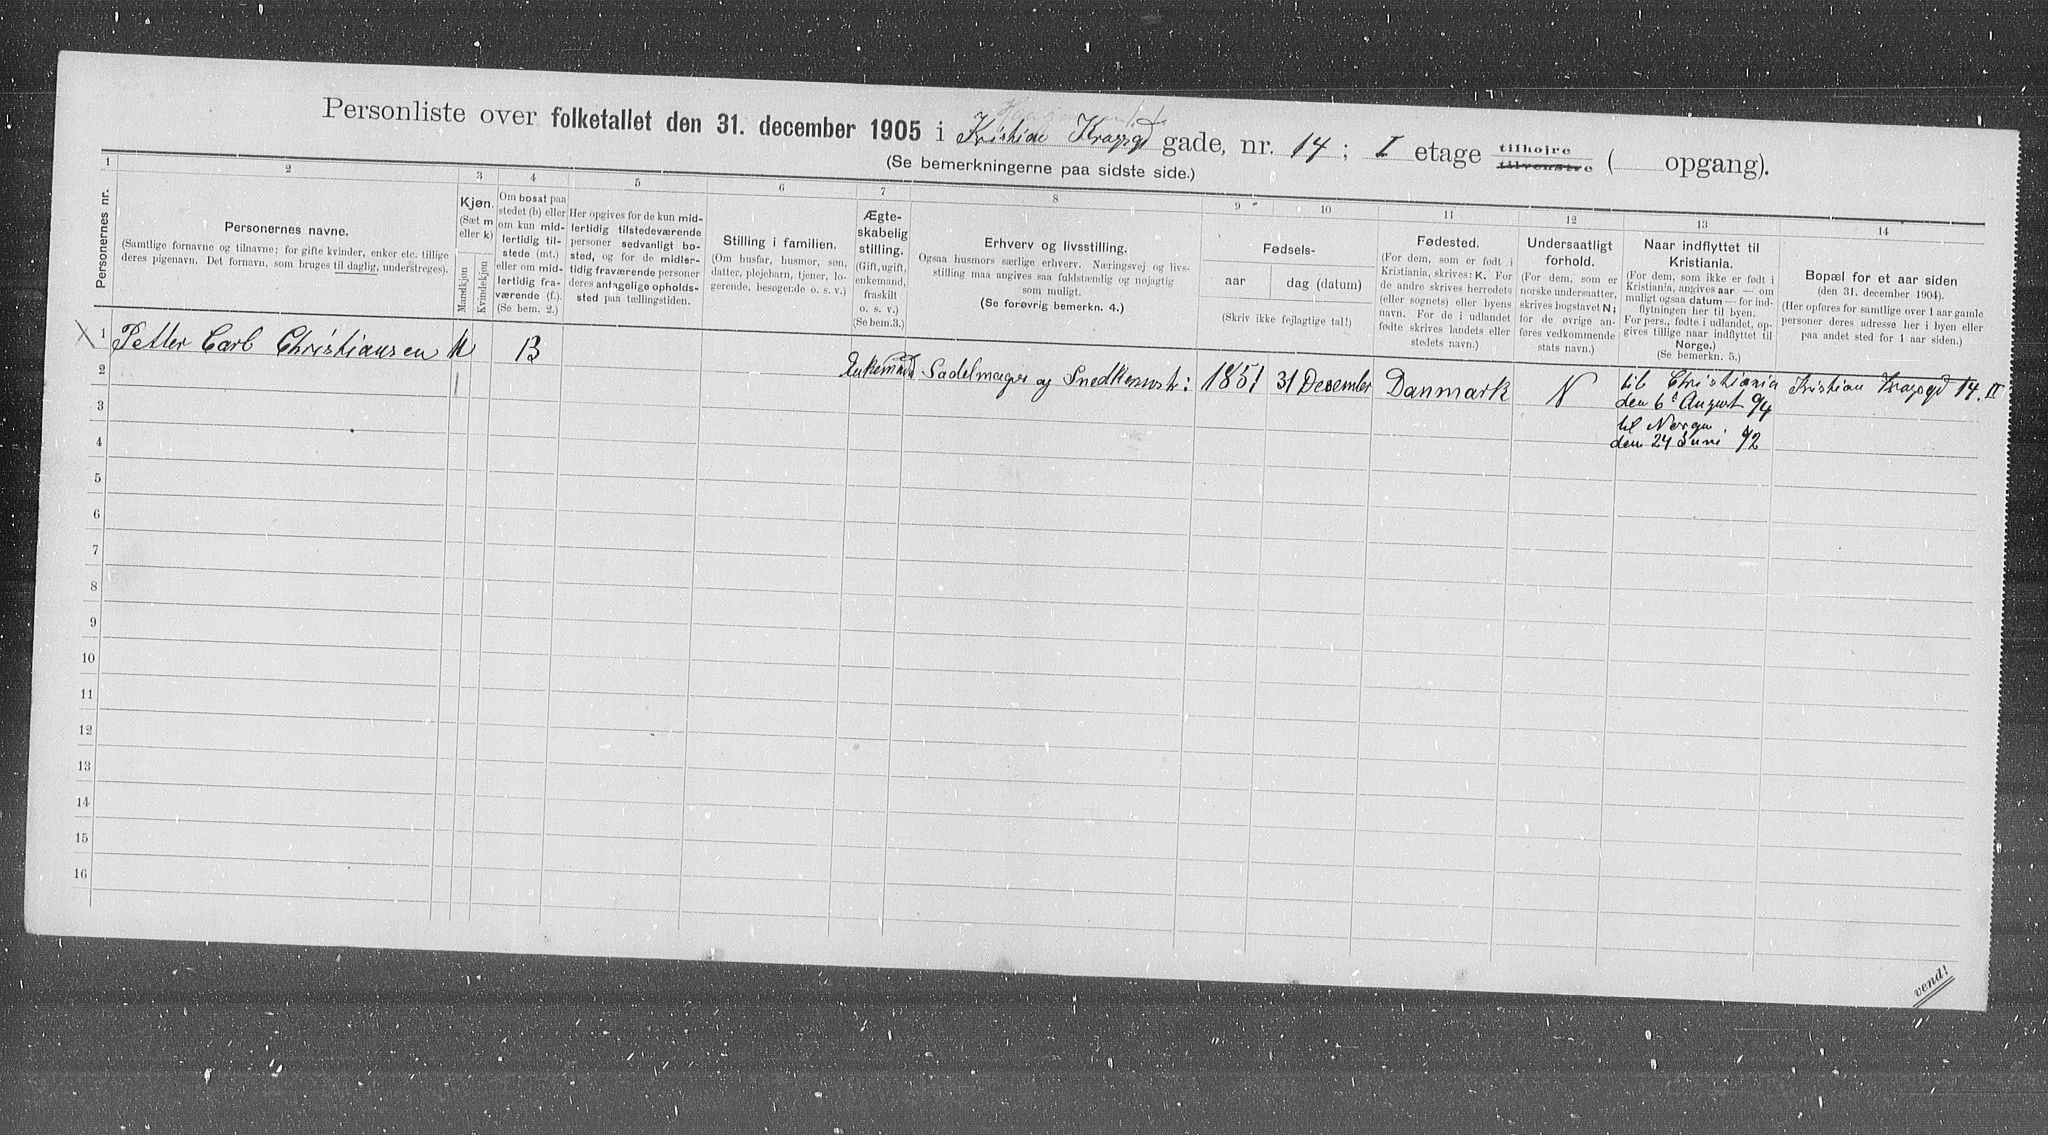 Personliste over folketallet den 31. december 1905 i Kristian Kraghsgd gade, nr. 14; I etage tilhøjre tilvenstre ( opgang).
(Se bemerkningerne paa sidste side.)
1 2 3 4 5 6 7 8 9 10 11 12 13 14
Personernes nr.
Personernes navne.
(Samtlige fornavne og tilnavne; for gifte kvinder, enker etc. tillige
deres pigenavn. Det fornavn, som bruges til daglig, understreges).
Kjøn.
(Sæt m
eller k)
Mandkjøn
Kvindekjøn
Om bosat paa
stedet (b) eller
om kun mid-
lertidig til-
stede (mt.)
eller om mid-
lertidig fra-
værende (f.).
(Se bem. 2.)
Her opgives for de kun mid-
lertidig tilstedeværende
personer sedvanligt bo-
sted, og for de midler-
tidig fraværende personer
deres antagelige opholds-
sted paa tællingstiden.
Stilling i familien.
(Om husfar, husmor, søn,
datter, plejebarn, tjener, lo-
gerende, besøgende o. s. v.)
Ægte-
skabelig
stilling.
(Gift, ugift,
enkemand,
fraskilt
o. s. v.)
(Se bem. 3.)
Erhverv og livsstilling.
Ogsaa husmors særlige erhverv. Næringsvej og livs-
stilling maa angives saa fuldstændig og nøjagtig
som muligt.
(Se forøvrig bemerkn. 4.)
Fødsels-
aar
dag (datum)
(Skriv ikke fejlagtige tal!)
Fødested.
(For dem, som er født i
Kristiania, skrives: K. For
de andre skrives herredets
(eller sognets) eller byens
navn. For de i udlandet
fødte skrives landets eller
stedets navn.)
Undersaatligt
forhold.
(For dem, som er
norske undersaatter,
skrives bogstavet N;
for de øvrige an-
føres vedkommende
stats navn.)
Naar indflyttet til
Kristiania.
(For dem, som ikke er født i
Kristiania, angives aar — om
muligt ogsaa datum — for ind-
flytningen her til byen.
For pers., fødte i udlandet, op-
gives tillige naar indflyttet til
Norge.)
(Se bemerkn. 5.)
Bopæl for et aar siden
(den 31. december 1904).
(Her opføres for samtlige over 1 aar gamle
personer deres adresse her i byen eller
paa andet sted for 1 aar siden.)
X 1 Petter Carl Christiansen M B
Enkemand Sadelmager og Snedker 1851 31 December Danmark N til Christiania Kristian Kraghsgd 14. II
den 6 August 94
til Norge
den 24 Juni 92
2
3
4
5
6
7
8
9
10
11
12
13
14
15
16
vend!